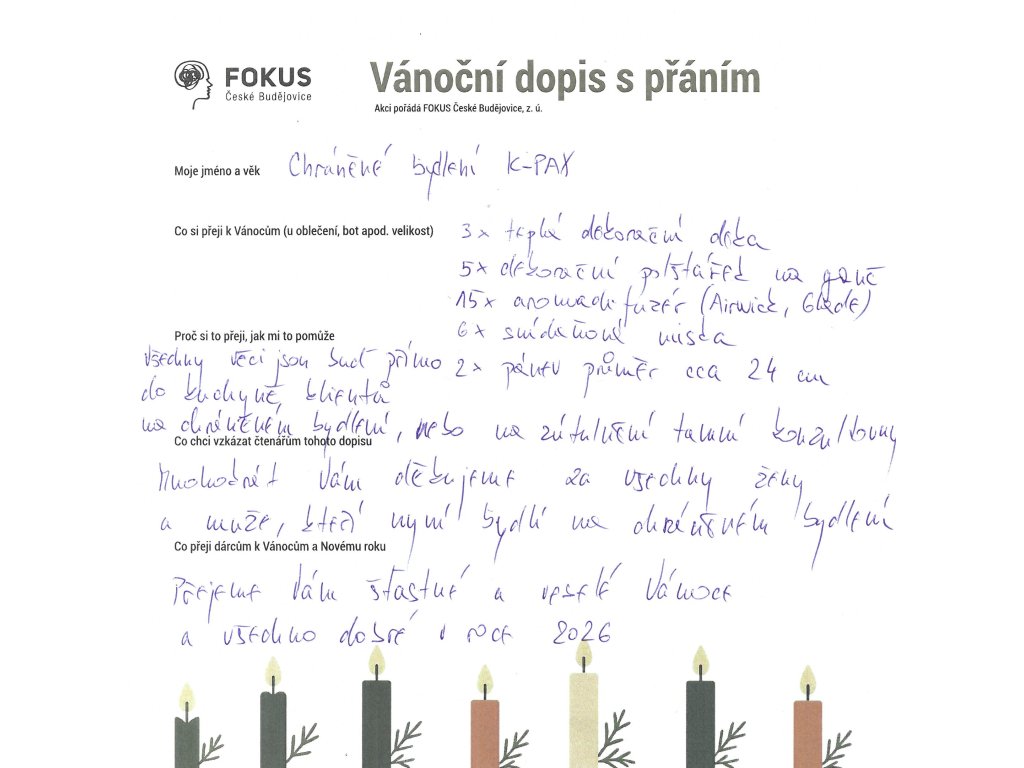 FOKUS
České Budějovice
Vánoční dopis s přáním
Akci pořádá FOKUS České Budějovice, z. ú.
Moje jméno a věk Chráněné bydlení K-PAX
Co si přeji k Vánocům (u oblečení, bot apod. velikost) 3x teplá dekorační deka
5x dekorační polštářek na gauč
15x aromadifuzér (Airwick, Glade)
Proč si to přeji, jak mi to pomůže 6x snídaňová miska
2x pánev průměr cca 24 cm
všechny věci jsou buď přímo
do kuchyně klientů
na chráněném bydlení, nebo na zútulnění tamní konzultovny
Co chci vzkázat čtenářům tohoto dopisu
Mnohokrát Vám děkujeme za všechny ženy
a muže, kteří nyní bydlí na chráněném bydlení
Co přeji dárcům k Vánocům a Novému roku
Přejeme Vám šťastné a veselé Vánoce
a všechno dobré v roce 2026